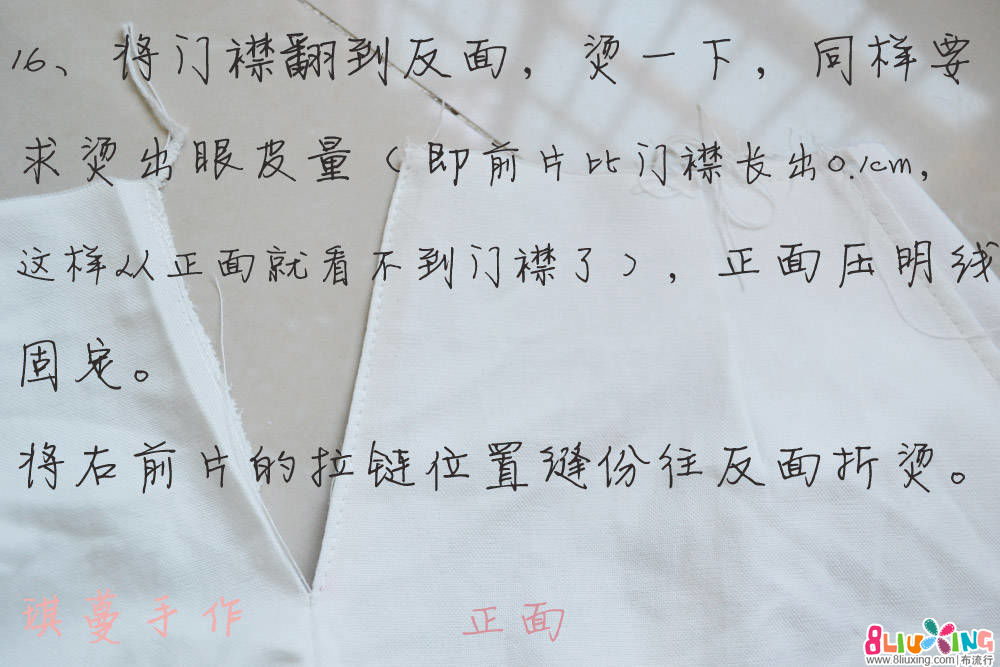 16、将门襟翻到反面，烫一下，同样要
求烫出眼皮量（即前片比门襟长出0.1cm，
这样从正面就看不到门襟了），正面压明线
固定。
将右前片的拉链位置缝份往反面折烫。
琪蔓手作
正面
8LIUXING
www.8liuxing.com|布流行